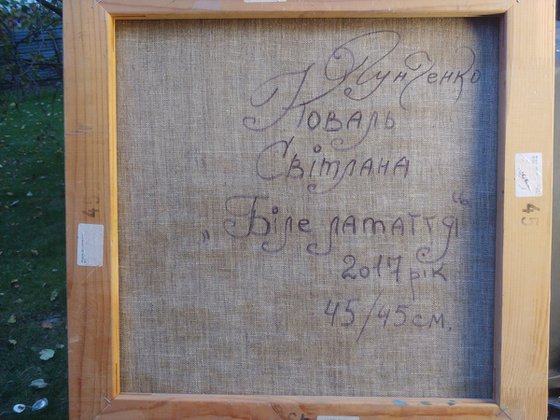 Коваль
Світлана
„Біле латаття“
2017 рік
45/45см.
45